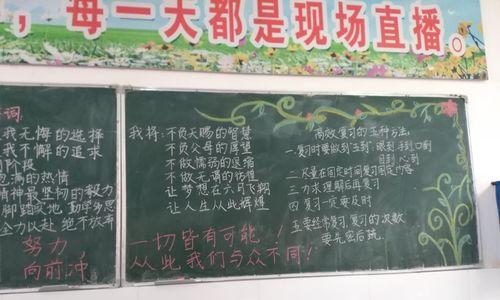 ，每一天都是现场直播。
词:
我无悔的选择
我不懈的追求
阶段
饱满的热情
精神最坚韧的毅力
脚踏实地 勤学多思
全力以赴 绝不放弃
努力，
向前冲
我将: 不负天赐的智慧
不负父母的厚望
不做懦弱的退缩
不做无谓的彷惶
让梦想在六可飞翔
让人生从此辉煌
一切皆有可能!
从此我们与众不同!
高效复习的五种方法:
一.复习时要做到"五到": 眼到 手到 口到
耳到 心到
二.尽量在固定时间复习固定内容
三.力求理解后再复习
四.复习一定要及时
五.要经常复习,复习的次数
要先密后疏.